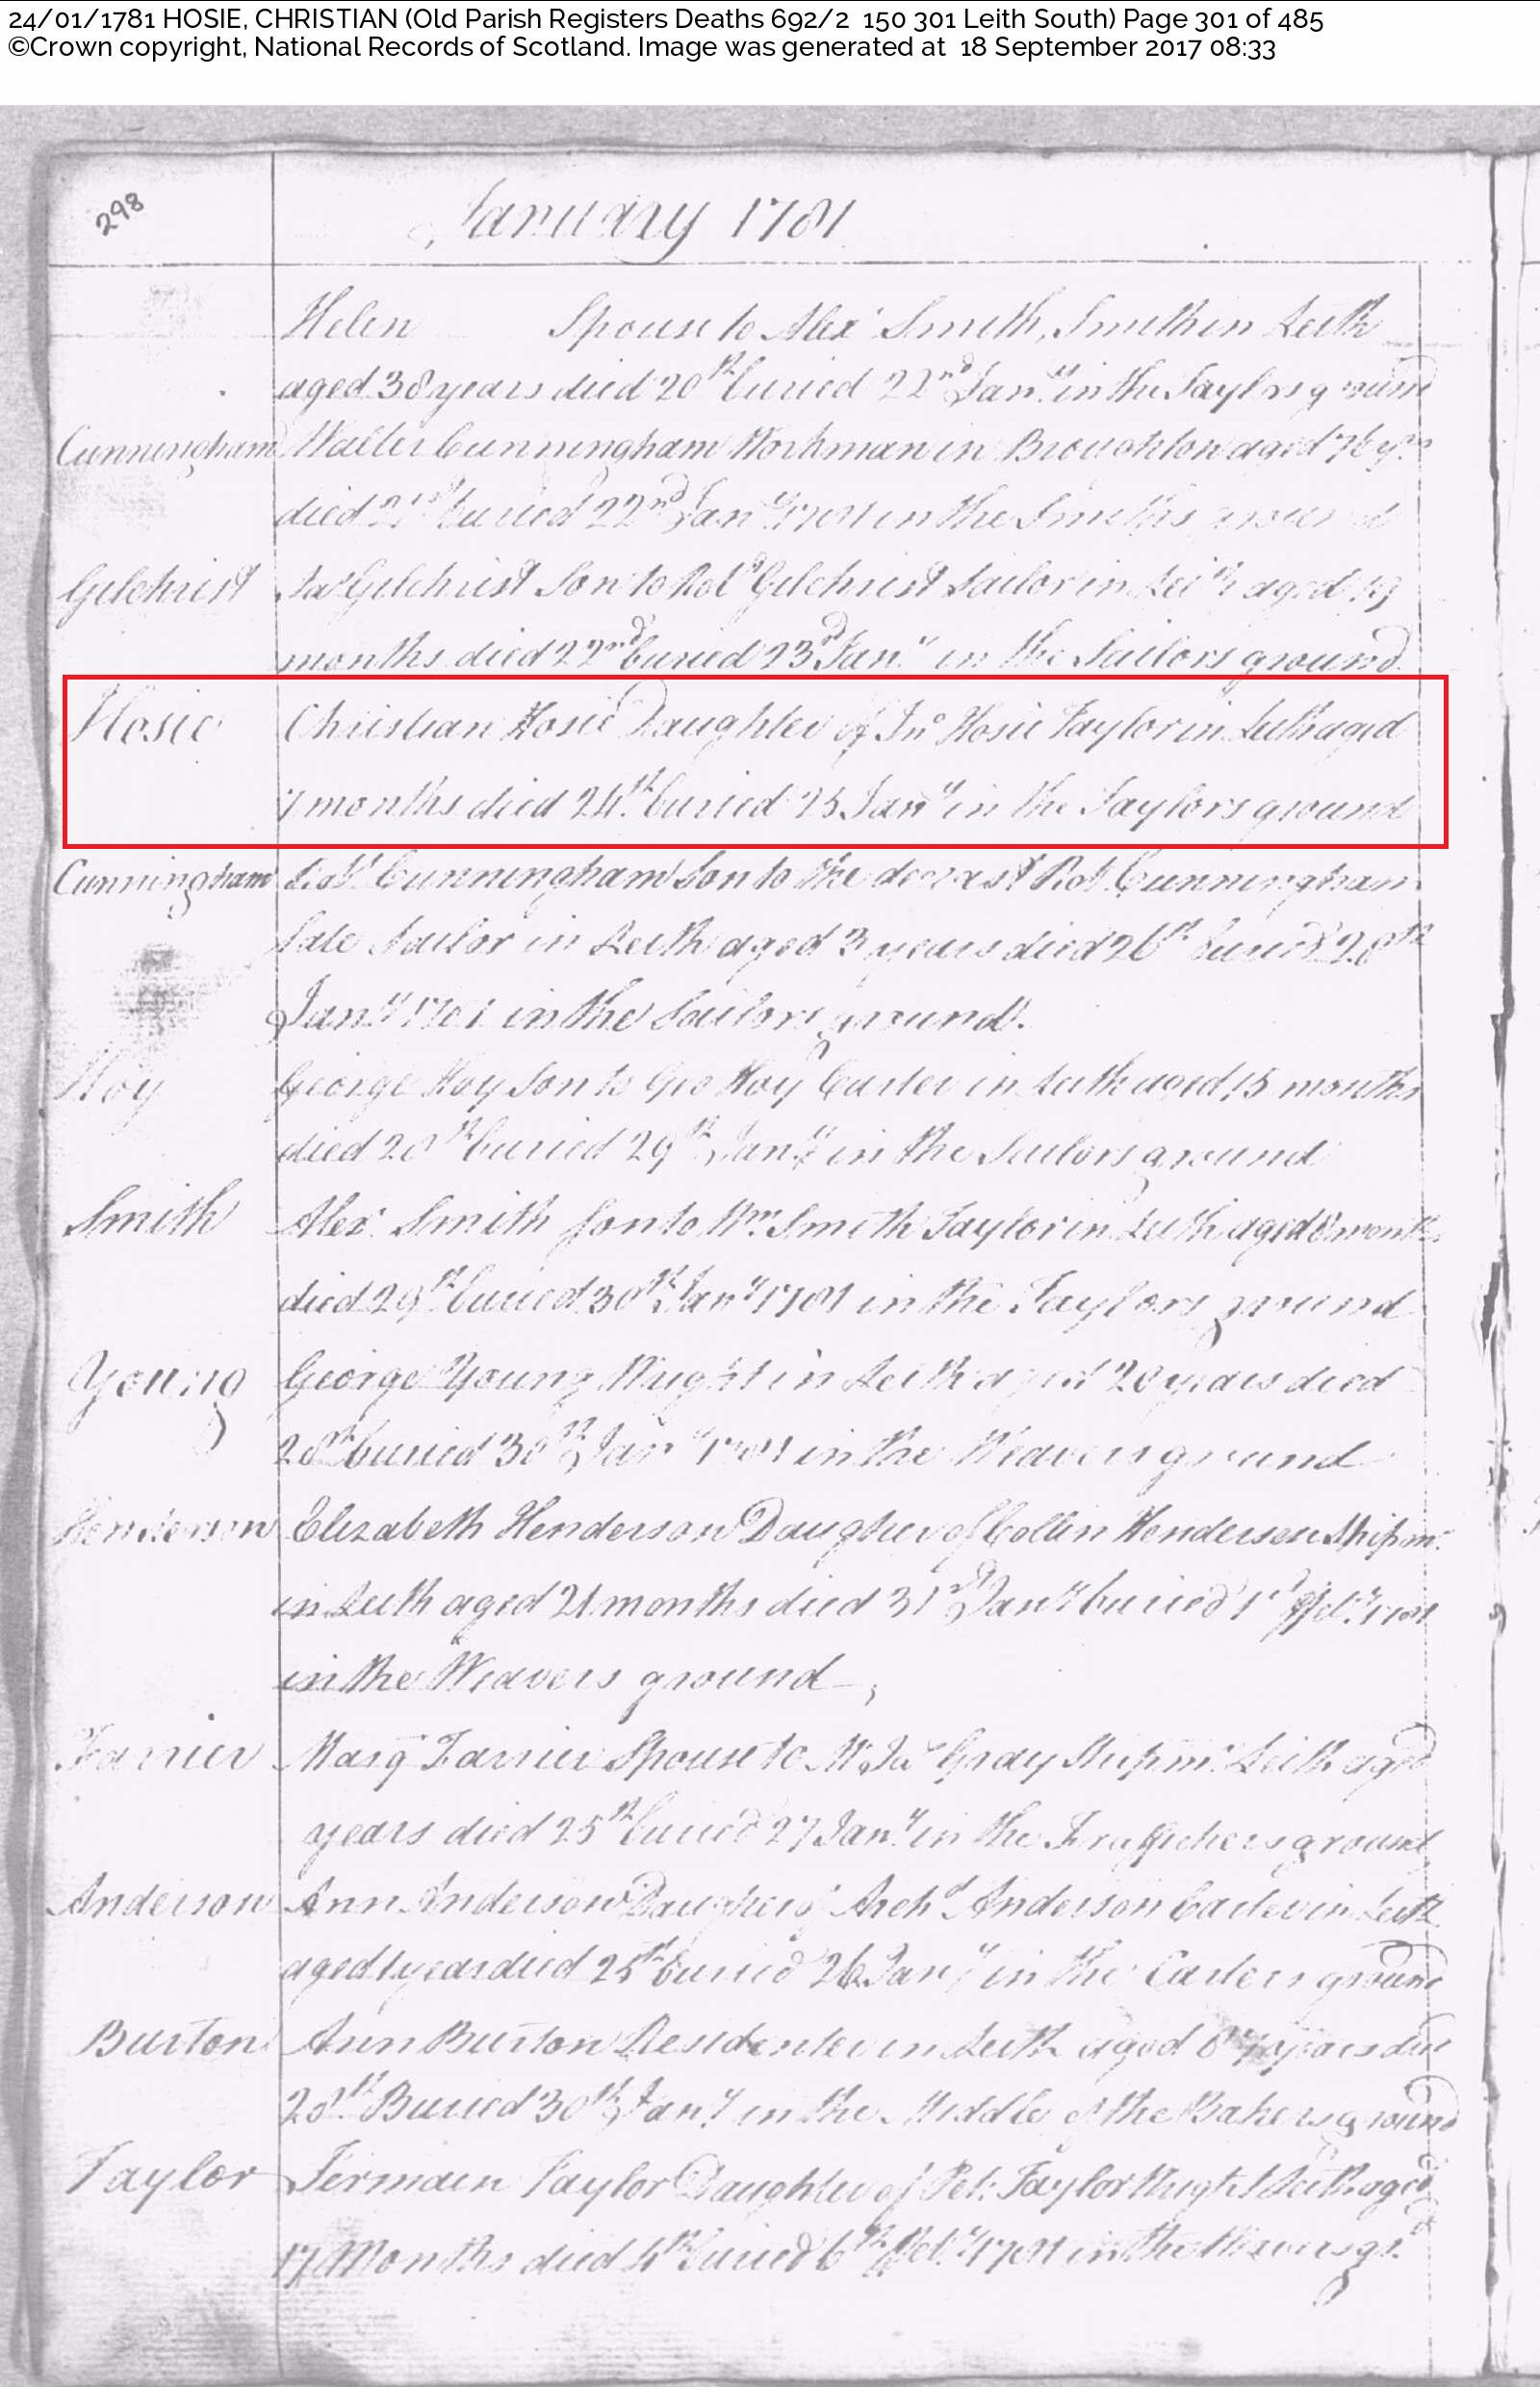 24/01/1781 HOSIE, CHRISTIAN (Old Parish Registers Deaths 692/2 150 301 Leith South) Page 301 of 485
©Crown copyright, National Records of Scotland. Image was generated at 18 September 2017 08:33
298
January 1781
Helen Spouse to Alexr Smith, Smith in Leith
aged 38 years died 20th buried 22nd Jany in the Taylors ground
Cunningham Walter Cunningham Workman in Broughton aged 76 yrs
died 21st buried 22nd Jany 1781 in the Smiths ground
Gilchrist Jas Gilchrist Son to Robt Gilchrist Sailor in Leith aged 19
months died 22nd buried 23rd Jany in the Sailors ground
Hosie Christian Hosie Daughter of Jno Hosie Taylor in Leith aged
7 months died 24th buried 25 Jany in the Taylors ground
Cunningham Robt Cunningham Son to the deceast Robt Cunningham
late Sailor in Leith aged 3 years died 26th buried 28th
Jany 1781 in the Sailors ground.
Hoy George Hoy Son to Geo Hoy Carter in Leith aged 15 months
died 28th buried 29th Jany in the Sailors ground
Smith Alexr Smith Son to Wm Smith Taylor in Leith aged 8 months
died 29th buried 30th Jany 1781 in the Taylors ground
Young George Young Wright in Leith aged 20 years died
28th buried 30th Jany 1781 in the Weavers ground
Henderson Elizabeth Henderson Daughter of Collin Henderson Shipmr
in Leith aged 21 months died 31st Jany buried 1st Feby 1781
in the Weavers ground,
Farrier Marg Farrier Spouse to Mr Jas Gray Shipmr Leith aged
years died 25th buried 27 Jany in the Traffickers ground
Anderson Ann Anderson Daughter of Archd Anderson Carter in Leith
aged 1 year died 25th buried 26 Jany in the Carters ground
Burton Ann Burton Residenter in Leith aged years died
28th Buried 30th Jany in the Middle of the Bakers ground
Taylor Jermain Taylor Daughter of Petr Taylor Wright Leith aged
17 Months died 4th buried 6th Feby 1781 in the gd